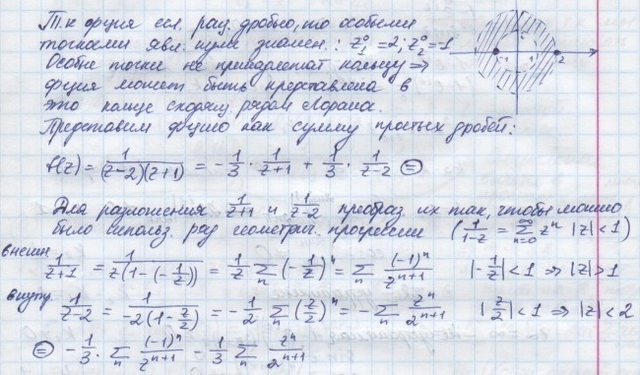 Т.к функция есл. рац. дробно, то особыми
точками явл. нули знамен.: z₁⁰=2; z₂⁰=-1
Особые точки не принадлежат кольцу ⇒
функция может быть представлена в
это кольце сходящ рядом Лорана.
Представим функцию как сумму простых дробей:
f(z) = 1/((z-2)(z+1)) = -1/3 · 1/(z+1) + 1/3 · 1/(z-2) ⊜
Для разложения 1/(z+1) и 1/(z-2) преобраз. их так, чтобы можно
было использ. ряд геометрич. прогрессии (1/(1-z) = ∑_{n=0}^{∞} zⁿ |z|<1)
внешн 1/(z+1) = 1/(z(1-(-1/z))) = 1/z ∑_n (-1/z)ⁿ = ∑_n (-1)ⁿ/zⁿ⁺¹ |-1/z|<1 ⇒ |z|>1
внутр. 1/(z-2) = 1/(-2(1-z/2)) = -1/2 ∑_n (z/2)ⁿ = -∑_n zⁿ/2ⁿ⁺¹ |z/2|<1 ⇒ |z|<2
⊜ -1/3 · ∑_n (-1)ⁿ/zⁿ⁺¹ - 1/3 ∑_n zⁿ/2ⁿ⁺¹